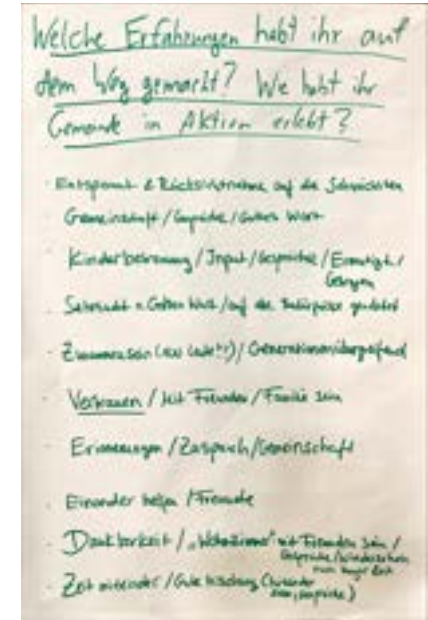 Welche Erfahrungen habt ihr auf
dem Weg gemacht? Wie habt ihr
Gemeinde in Aktion erlebt?
- Entspannt & Rücksichtnahme auf die Schwächsten
- Gemeinschaft / Gespräche / Gottes Wort
- Kinderbetreuung / Input / Gespräche / Ermutigt /
- Sehnsucht n. Gottes Wort / auf die Bedürfnisse
- Zusammensein (Leute!!) / Generationenübergreifend
- Vertrauen / Mit Freunden / Familie sein
- Erinnerungen / Zuspruch / Gemeinschaft
- Einander helfen / Freude
- Dankbarkeit / "Wohnzimmer" mit Freunden sein /
Gespräche / Wiedersehen
nach langer Zeit
- Zeit miteinander / Gute Mischung (
sein, Gespräche)